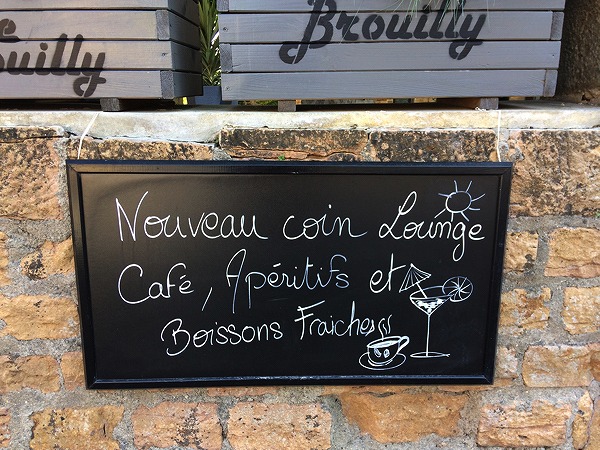 ouilly
Brouilly
Nouveau coin Lounge
Café, Apéritifs et
Boissons Fraiches